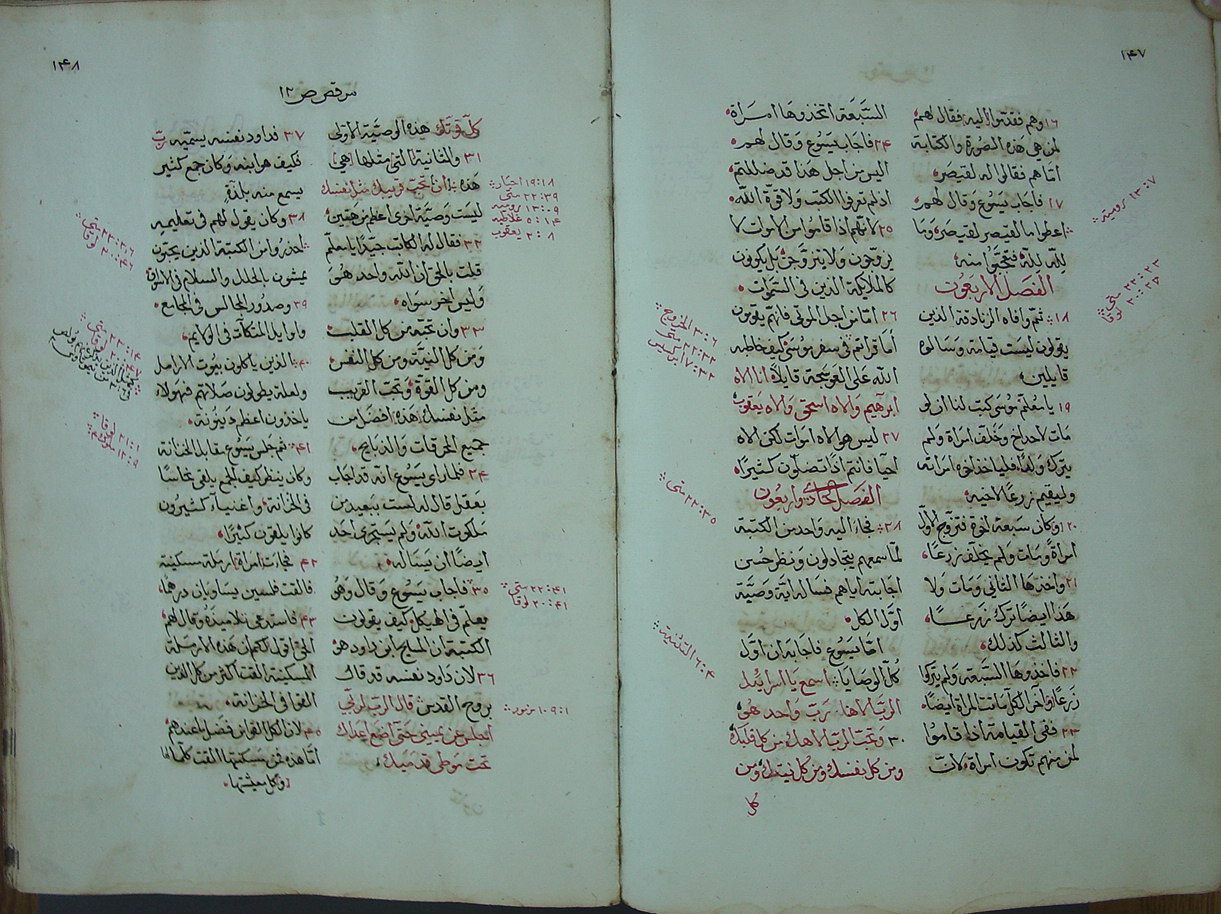 ١٤٧
١٦ وهم فقدّموا إليه فقال لهم
لمن هي هذه الصّورة والكتابة
امّا هم فقالوا له لقيصر
١٧ فاجاب يسوع وقال لهم
اعطوا ما لقيصر لقيصر وما
للّه للّه فتعجّبوا منه
الفصل الاربعون
١٨ ثمّ وافاه الزنادقة الذين
يقولون ليست قيامة وسالوه
قايلين
١٩ يا معلّم موسى كتب لنا ان لو
مات لاحد اخ وخلّف امراة ولم
يترك ولدًا فلياخذ اخوه امراته
وليقيم زرعًا لاخيه
٢٠ وكان سبعة اخوة فتزوّج الاوّل
امراة ومات ولم يخلّف زرعًا
٢١ واخذها الثاني ومات ولا
هذا ايضا ترك زرعًا
والثالث كذلك
٢٢ فاخذوها السّبعة ولم يتركوا
زرعًا واخر الكلّ ماتت المراة ايضًا
٢٣ ففي القيامة اذا قاموا
لمن منهم تكون امراة لانّ
١٣:٧ رومية
٢٢:٢٣ متى
٢٠:٢٧ لوقا
السّبعة اتخذوها امراة
٢٤ فاجاب يسوع وقال لهم
اليس من اجل هذا قد ضللتم
اذ لم تعرفوا الكتب ولا قوّة اللّه
٢٥ لانّهم اذا قاموا من الاموات لا
يزوّجون ولا يتزوّجن بل يكونون
كالملايكة الذين في السّموات
٢٦ امّا من اجل الموتى فانّهم يقومون
اما قراتم في سفر موسى كيف خاطبه
اللّه على العوسجة قايلًا انا الاه
ابرهيم والاه اسحق والاه يعقوب
٢٧ ليس هو الاه اموات لكن الاه
احيا فانتم اذًا تضلّون كثيرًا
الفصل حادي واربعون
٢٨ فجاء اليه واحد من الكتبة
لمّا سمعهم يتجادلون ونظر حسن
اجابته اياهم فساله اية وصيّة
اوّل الكل
امّا يسوع فاجابه ان اوّل
كلّ الوصايا اسمع يا اسرائيل
الربّ الاهنا ربّ واحد هو
٣٠ وتحبّ الربّ الاهك من كل قلبك
ومن كل نفسك ومن كل نيّتك ومن
كل
٣:٦ الخروج
٢٢:٣٢ متى
٢٢:٣٥ متى
٦:٤ التثنية
١٤٨
مرقص ص ١٢
كلّ قوّتك هذه الوصيّة الاولى
٣١ والثانية التي مثلها هي
هذه ان تحبّ قريبك مثل نفسك
ليست وصيّة اخرى اعظم من هتين
٣٢ فقال له الكاتب جيّدًا يا معلّم
قلت بالحق ان اللّه واحد هو
وليس اخر سواه
٣٣ وان تحبّه من كل القلب
ومن كل النيّة ومن كل النفس
ومن كل القوة وتحب القريب
مثل نفسك هذه افضل من
جميع المحرقات والذبايح
٣٤ فلما راى يسوع انه قد اجاب
بعقل قال له لست ببعيد من
ملكوت اللّه ولم يستجرى احد
ايضًا ان يساله
٣٥ فاجاب يسوع وقال وهو
يعلّم في الهيكل كيف يقولون
الكتبة ان المسيح ابن داود هو
٣٦ لان داود نفسه قد قال
بروح القدس قال الربّ لربّي
اجلس عن يميني حتى اضع اعداك
تحت موطى قدميك
١٩:١٨ احبار
٢٢:٣٩ متى
١٣:٩ رومية
٥:١٤ غلاطيه
٢:٨ يعقوب
٢٢:٤١ متى
٢٠:٤١ لوقا
١٠٩:١ زبور
٣٧ فداود نفسه يسمّيه ربّ
فكيف هو ابنه وكان جمع كثير
يسمع منه بلذة
٣٨ وكان يقول لهم في تعليمه
احذروا من الكتبة الذين يحبّون
يمشون بالحلل والسلام في الاسواق
٣٩ وصدور المجالس في المجامع
واوايل المتكآت في الولايم
٤٠ الذين ياكلون بيوت الارامل
ولعلة يطولون صلاتهم فهولاء
ياخذون اعظم دينونة
٤١ ثم جلس يسوع مقابل الخزانة
وكان ينظر كيف الجمع يلقي نحاسًا
في الخزانة واغنياء كثيرون
كانوا يلقون كثيرًا
٤٢ فجاءت امراة ارملة مسكينة
فالقت فلسين يساويان درهما
٤٣ فاستدعى تلاميذه وقال لهم
الحق اقول لكم ان هذه الارملة
المسكينة القت اكثر من كل الذين
القوا في الخزانة
لان الكل القوا من فضل ما عندهم
امّا هذه فمن مسكنتها القت كلما لها
وكل معيشتها
٢٣:٦ متى
٢٠:٤٦ لوقا
٢٣:١٤ متى
٢٠:٤٧ لوقا
٢١:١ لوقا